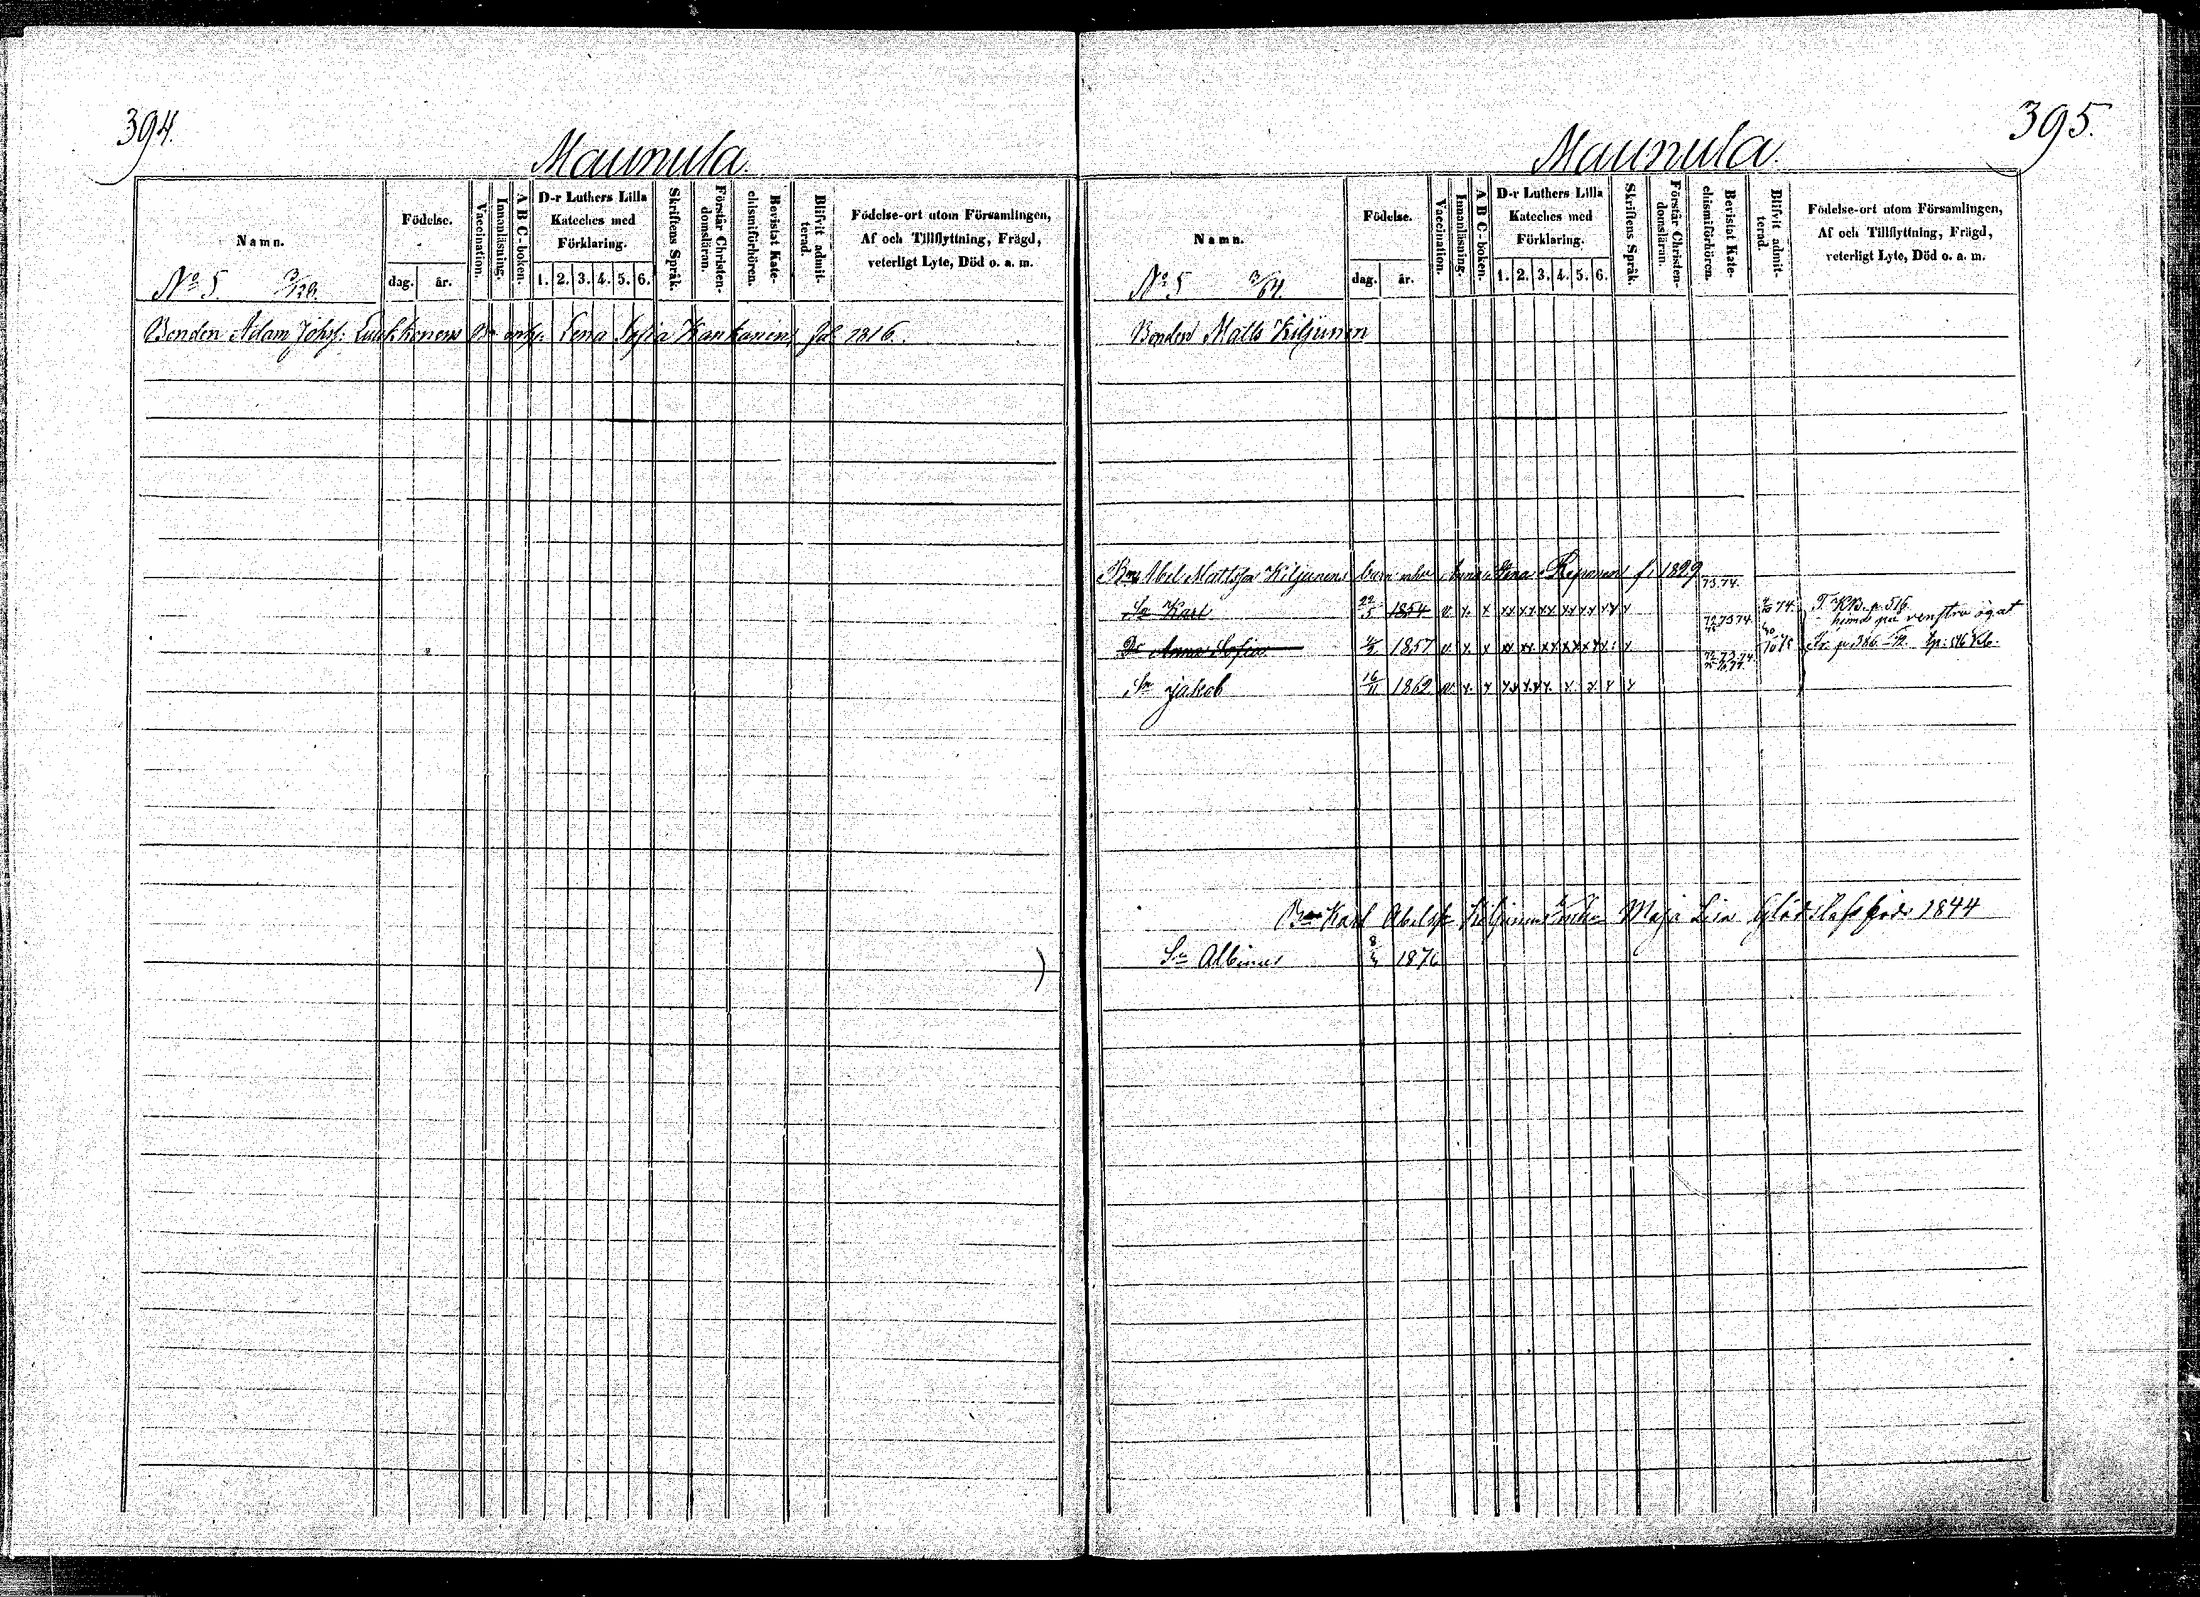 394.
Maunula.
Namn.
Födelse.
dag. år.
Vaccination.
Innanläsning.
A B C-boken.
D-r Luthers Lilla
Kateches med
Förklaring.
1. 2. 3. 4. 5. 6.
Skriftens Språk.
Förstår Christen-
domsläran.
Bevistat Kate-
chismiförhören.
Blifvit admit-
terad.
Födelse-ort utom Församlingen,
Af och Tillflyttning, Frägd,
veterligt Lyte, Död o. a. m.
No 5
Bonden Adam Johsf: Luukkonens Lena Sofia Kankanen 1816.
395.
Maunula.
Namn.
Födelse.
dag. år.
Vaccination.
Innanläsning.
A B C-boken.
D-r Luthers Lilla
Kateches med
Förklaring.
1. 2. 3. 4. 5. 6.
Skriftens Språk.
Förstår Christen-
domsläran.
Bevistat Kate-
chismiförhören.
Blifvit admit-
terad.
Födelse-ort utom Församlingen,
Af och Tillflyttning, Frägd,
veterligt Lyte, Död o. a. m.
No 5 3/64.
Bonden Matts Kiljunen
Abel Mattsson Kiljunens Anna Lena Reponen f. 1829
73.74.
Sn Karl 22/5 1854 v. x. x xx xx xx xx xx xx x 74. T. KB. p. 516.
venstra ögat
72.73.74.
Dr Anna Sofia 1857 v. x. x xx xx. xx xx xx x
72.73.74.
Sn Jakob 16/11 1862 v. x. x xx xx x x. x x x
Karl Abelsf Kiljunens Maja Lisa 1844
Sn Albinus 1876